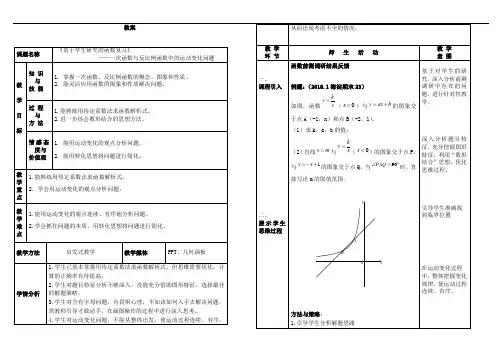 教案
课题名称
《基于学生研究的函数复习》
——一次函数与反比例函数中的运动变化问题
教学目标
知识与技能
1. 掌握一次函数、反比例函数的概念、图象和性质。
2. 能灵活应用函数的图象和性质解决问题。
过程与方法
1.能熟练用待定系数法求函数解析式。
2.进一步体会数形结合的思想方法。
情感态度与价值观
1. 能用运动变化的观点分析问题。
2. 能用转化思想将问题进行简化。
教学重点
1.能熟练用待定系数法求函数解析式。
2. 学会用运动变化的观点分析问题。
教学难点
1.能用运动变化的观点连续、有序地分析问题。
2.学会抓住问题的本质，用转化思想将问题进行简化。
教学方法
启发式教学
教学媒体
PPT、几何画板
学情分析
1.学生已基本掌握用待定系数法求函数解析式，但思维需要优化，计算的正确率有待提高。
2.学生对题目特征分析不够深入，没能充分借助图形特征，选择最佳的解题策略。
3.学生对含有字母问题，有畏惧心理，不知该如何入手去解决问题，需教师引导才敢动手，在画图操作的过程中进行深入思考。
4.学生对运动变化问题，不能从整体出发，使运动过程连续、有序，
从而出现考虑不全的情况。
教学环节
师 生 活 动
教学意图
一、课程引入
函数前测调研结果反馈
例题：（2018.1海淀期末23）
如图，函数y=k/x（x<0）与y=ax+b的图象交于点A（-1，n）和点B（-2，1）。
（1）求k，a，b的值；
（2）直线x=m与y=k/x（x<0）的图象交于点P，与y=-x+1的图象交于点Q，当∠PAQ>90°时，直接写出m的取值范围。
二、展示学生思维过程
方法与策略
1.引导学生分析解题思路
基于对学生的研究，深入分析前测调研中存在的问题，进行针对性教学。
深入分析题目特征，充分挖掘图形特征；利用“数形结合”思想，优化思维过程。
引导学生准确找到临界位置
在运动变化过程中，整体把握变化规律，使运动过程连续、有序。